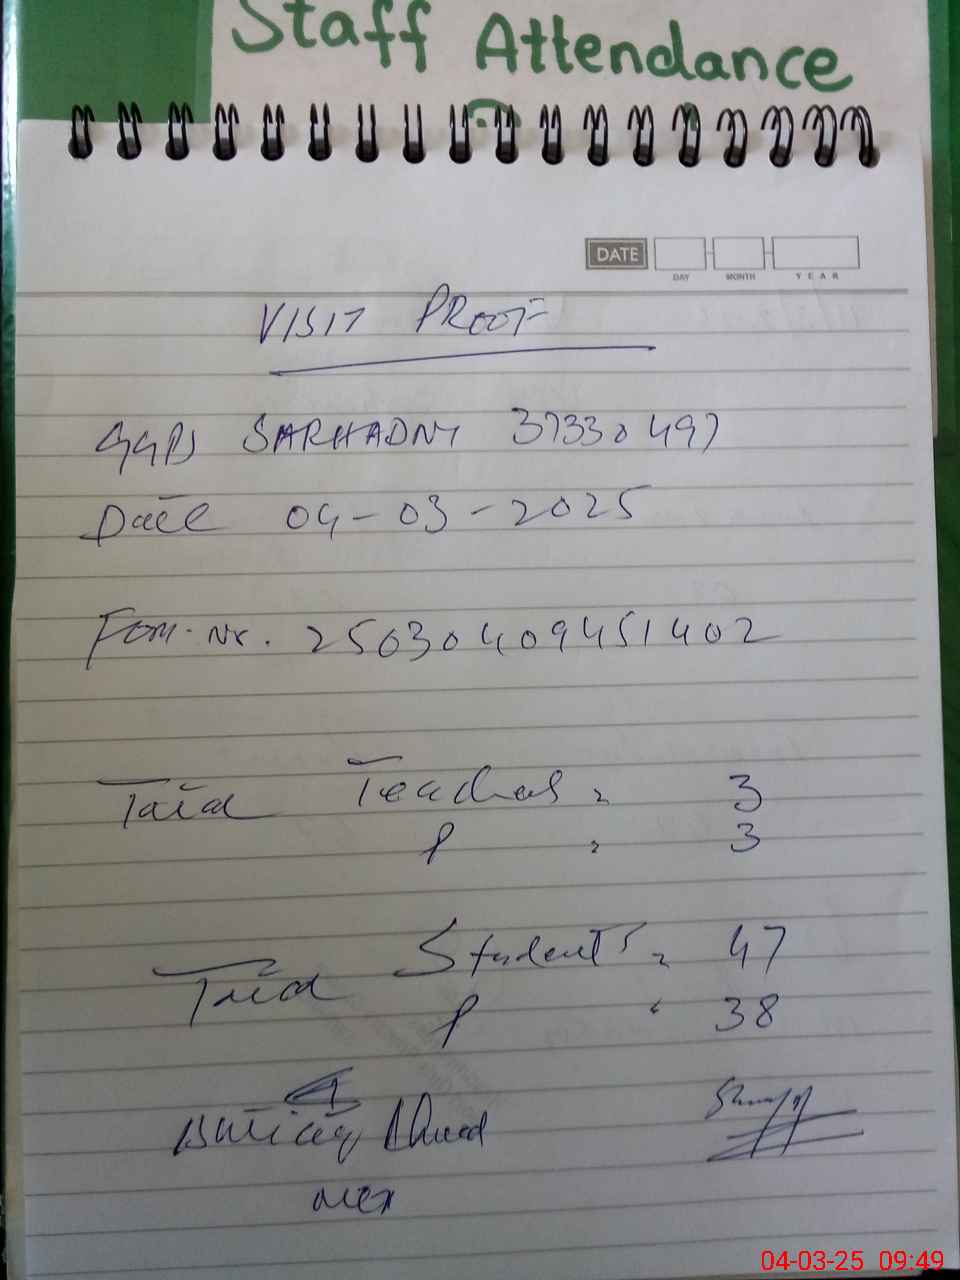 Staff Attendance
DATE
DAY MONTH YEAR
VISIT PROOF
GGPS SARHADNY 37330497
Date 04-03-2025
Fom. Nr. 25030409451402
Total Teachers = 3
P = 3
Total Students = 47
P = 38
Ahmad
MEA
04-03-25 09:49